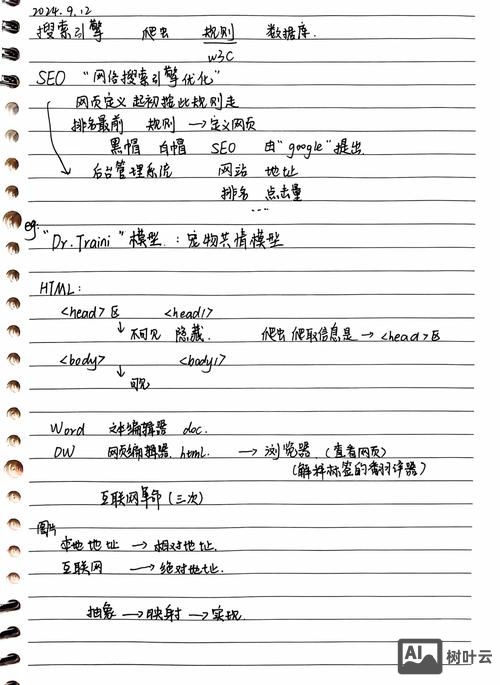 2024.9.12
搜索引擎 爬虫 规则 数据库.
W3C
SEO "网络搜索引擎优化"
网页定义 起初按此规则走
排名最前 规则 →定义网页
黑帽 白帽 SEO 由"google"提出.
后台管理系统 网站 地址
排名 点击量
...
eg: "Dr.Traini"模型.:宠物共情模型
HTML:
<head>区 <head/>
↓不可见 隐藏. 爬虫 爬取信息是→<head>区
<body> <body/>
↓可见
Word 文本编辑器 doc.
DW 网页编辑器.html. →浏览器.(查看网页)
(解释标签的翻译器)
互联网革命(三次)
图片
本地地址 →相对地址.
互联网 →绝对地址.
抽象→映射→实现.
AI 树叶云